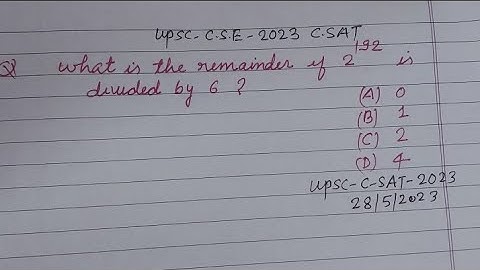 UPSC- C.S.E - 2023 C.SAT
Q what is the remainder if 2^192 is
divided by 6 ?
(A) 0
(B) 1
(C) 2
(D) 4
UPSC-C-SAT-2023
28/5/2023